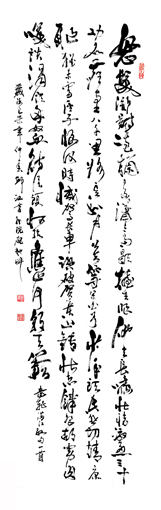 怒髮衝冠憑欄處瀟瀟雨歇抬望眼仰天長嘯壯懷激烈三十
功名塵與土八千里路雲和月莫等閒白了少年頭空悲切靖康
恥猶未雪臣子恨何時滅駕長車踏破賀蘭山缺壯志飢餐胡虜肉
笑談渴飲匈奴血待從頭收拾舊山河朝天闕 岳飛滿江紅一首